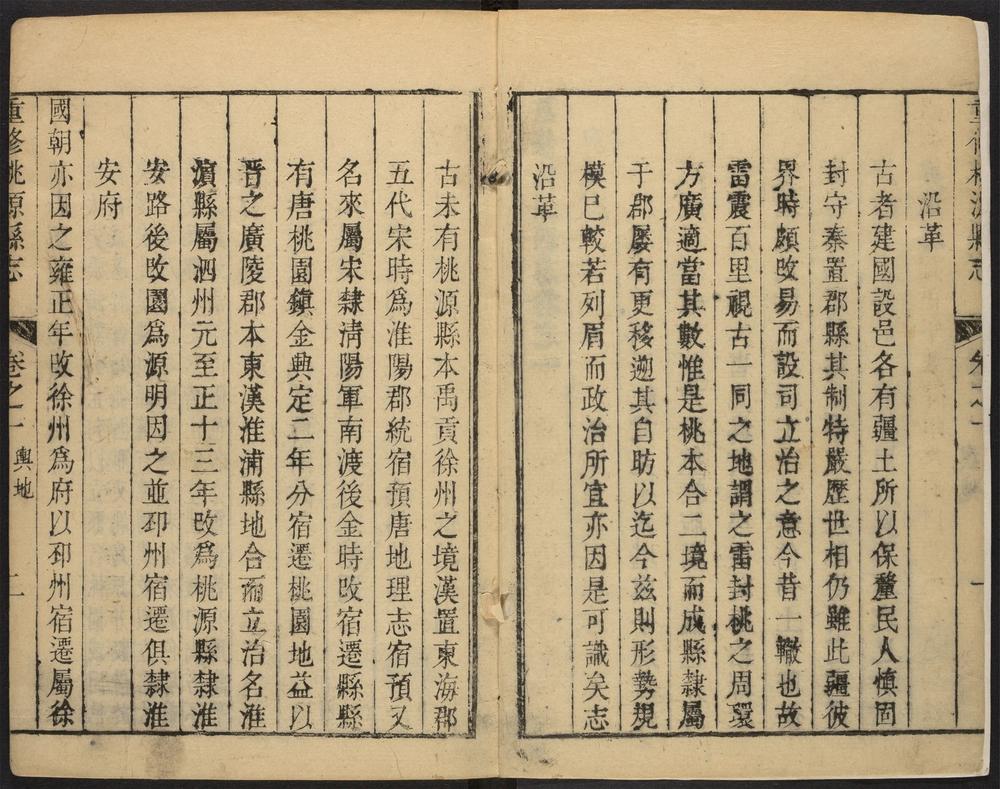 重修桃源縣志
卷之一
一
沿革
古者建國設邑各有疆土所以保釐民人愼固
封守秦置郡縣其制特嚴歷世相仍雖此疆彼
界時頗攺易而設司立治之意今昔一轍也故
雷震百里視古一同之地謂之雷封桃之周環
方廣適當其數惟是桃本合二境而成縣隸屬
于郡屢有更移遡其自昉以迄今茲則形勢規
模已較若列眉而政治所宜亦因是可識矣志
沿革
古未有桃源縣本禹貢徐州之境漢置東海郡
五代宋時爲淮陽郡統宿預唐地理志宿預又
名來屬宋隸淸陽軍南渡後金時攺宿遷縣縣
有唐桃園鎭金興定二年分宿遷桃園地益以
晉之廣陵郡本東漢淮浦縣地合而立治名淮
濱縣屬泗州元至正十三年攺爲桃源縣隸淮
安路後攺園爲源明因之並邳州宿遷俱隸淮
安府
國朝亦因之雍正年攺徐州爲府以邳州宿遷屬徐
重修桃源縣志
卷之一 輿地
二